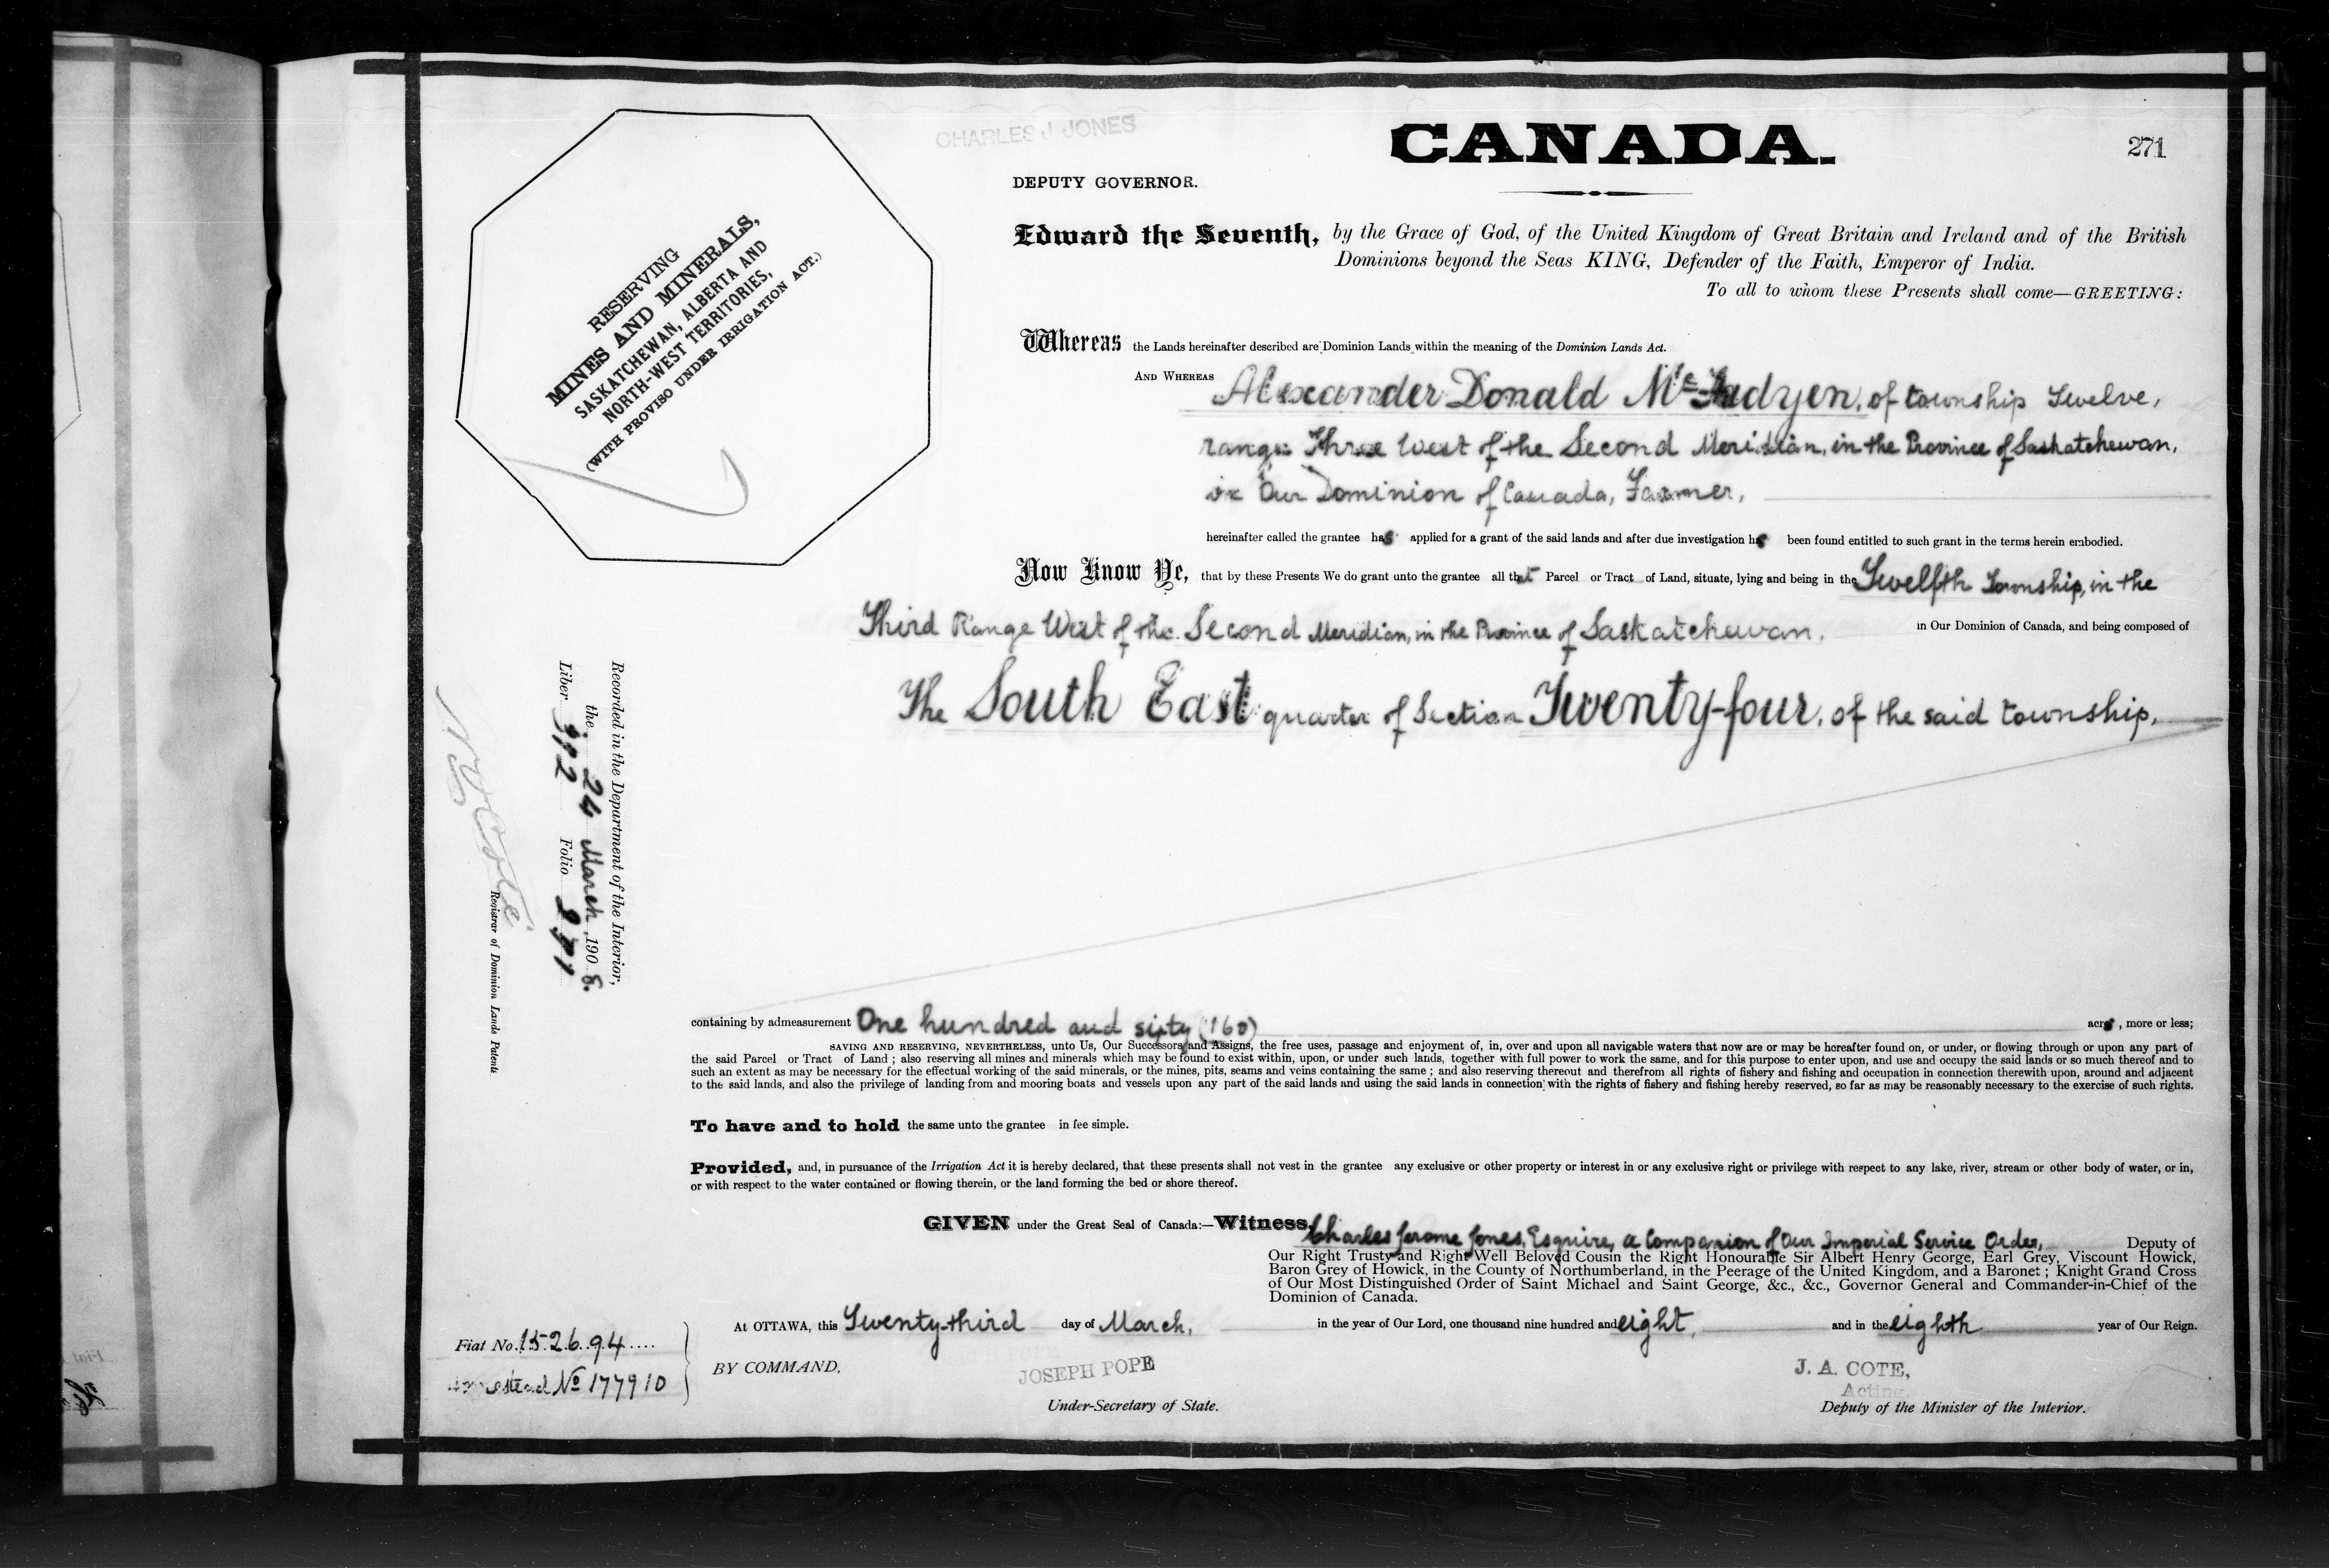 CHARLES J. JONES
CANADA.
271
DEPUTY GOVERNOR.
Edward the Seventh, by the Grace of God, of the United Kingdom of Great Britain and Ireland and of the British
Dominions beyond the Seas KING, Defender of the Faith, Emperor of India.
To all to whom these Presents shall come—GREETING:
RESERVING
MINES AND MINERALS,
SASKATCHEWAN, ALBERTA AND
NORTH-WEST TERRITORIES,
(WITH PROVISO UNDER IRRIGATION ACT.)
Whereas the Lands hereinafter described are Dominion Lands within the meaning of the Dominion Lands Act.
AND WHEREAS Alexander Donald McFadyen, of township Twelve,
range Three West of the Second Meridian, in the Province of Saskatchewan,
in Our Dominion of Canada, Farmer,
hereinafter called the grantee has applied for a grant of the said lands and after due investigation has been found entitled to such grant in the terms herein embodied.
Now Know Ye, that by these Presents We do grant unto the grantee all that Parcel or Tract of Land, situate, lying and being in the Twelfth Township, in the
Third Range West of the Second Meridian, in the Province of Saskatchewan, in Our Dominion of Canada, and being composed of
The South East quarter of Section Twenty-four, of the said township,
Recorded in the Department of the Interior,
the 24 March 1908.
Liber 392 Folio 271
N O Coté
Registrar of Dominion Lands Patents
containing by admeasurement One hundred and sixty (160) acres, more or less;
SAVING AND RESERVING, NEVERTHELESS, unto Us, Our Successors and Assigns, the free uses, passage and enjoyment of, in, over and upon all navigable waters that now are or may be hereafter found on, or under, or flowing through or upon any part of
the said Parcel or Tract of Land; also reserving all mines and minerals which may be found to exist within, upon, or under such lands, together with full power to work the same, and for this purpose to enter upon, and use and occupy the said lands or so much thereof and to
such an extent as may be necessary for the effectual working of the said minerals, or the mines, pits, seams and veins containing the same; and also reserving thereout and therefrom all rights of fishery and fishing and occupation in connection therewith upon, around and adjacent
to the said lands, and also the privilege of landing from and mooring boats and vessels upon any part of the said lands and using the said lands in connection with the rights of fishery and fishing hereby reserved, so far as may be reasonably necessary to the exercise of such rights.
To have and to hold the same unto the grantee in fee simple.
Provided, and, in pursuance of the Irrigation Act it is hereby declared, that these presents shall not vest in the grantee any exclusive or other property or interest in or any exclusive right or privilege with respect to any lake, river, stream or other body of water, or in,
or with respect to the water contained or flowing therein, or the land forming the bed or shore thereof.
GIVEN under the Great Seal of Canada:—Witness, Charles Jerome Jones, Esquire, a Companion of Our Imperial Service Order, Deputy of
Our Right Trusty and Right Well Beloved Cousin the Right Honourable Sir Albert Henry George, Earl Grey, Viscount Howick,
Baron Grey of Howick, in the County of Northumberland, in the Peerage of the United Kingdom, and a Baronet; Knight Grand Cross
of Our Most Distinguished Order of Saint Michael and Saint George, &c., &c., Governor General and Commander-in-Chief of the
Dominion of Canada.
At OTTAWA, this Twenty-third day of March, in the year of Our Lord, one thousand nine hundred and eight, and in the eighth year of Our Reign.
Fiat No. 152694
Homestead No 177910
BY COMMAND.
JOSEPH POPE
Under-Secretary of State.
J. A. COTE,
Acting
Deputy of the Minister of the Interior.